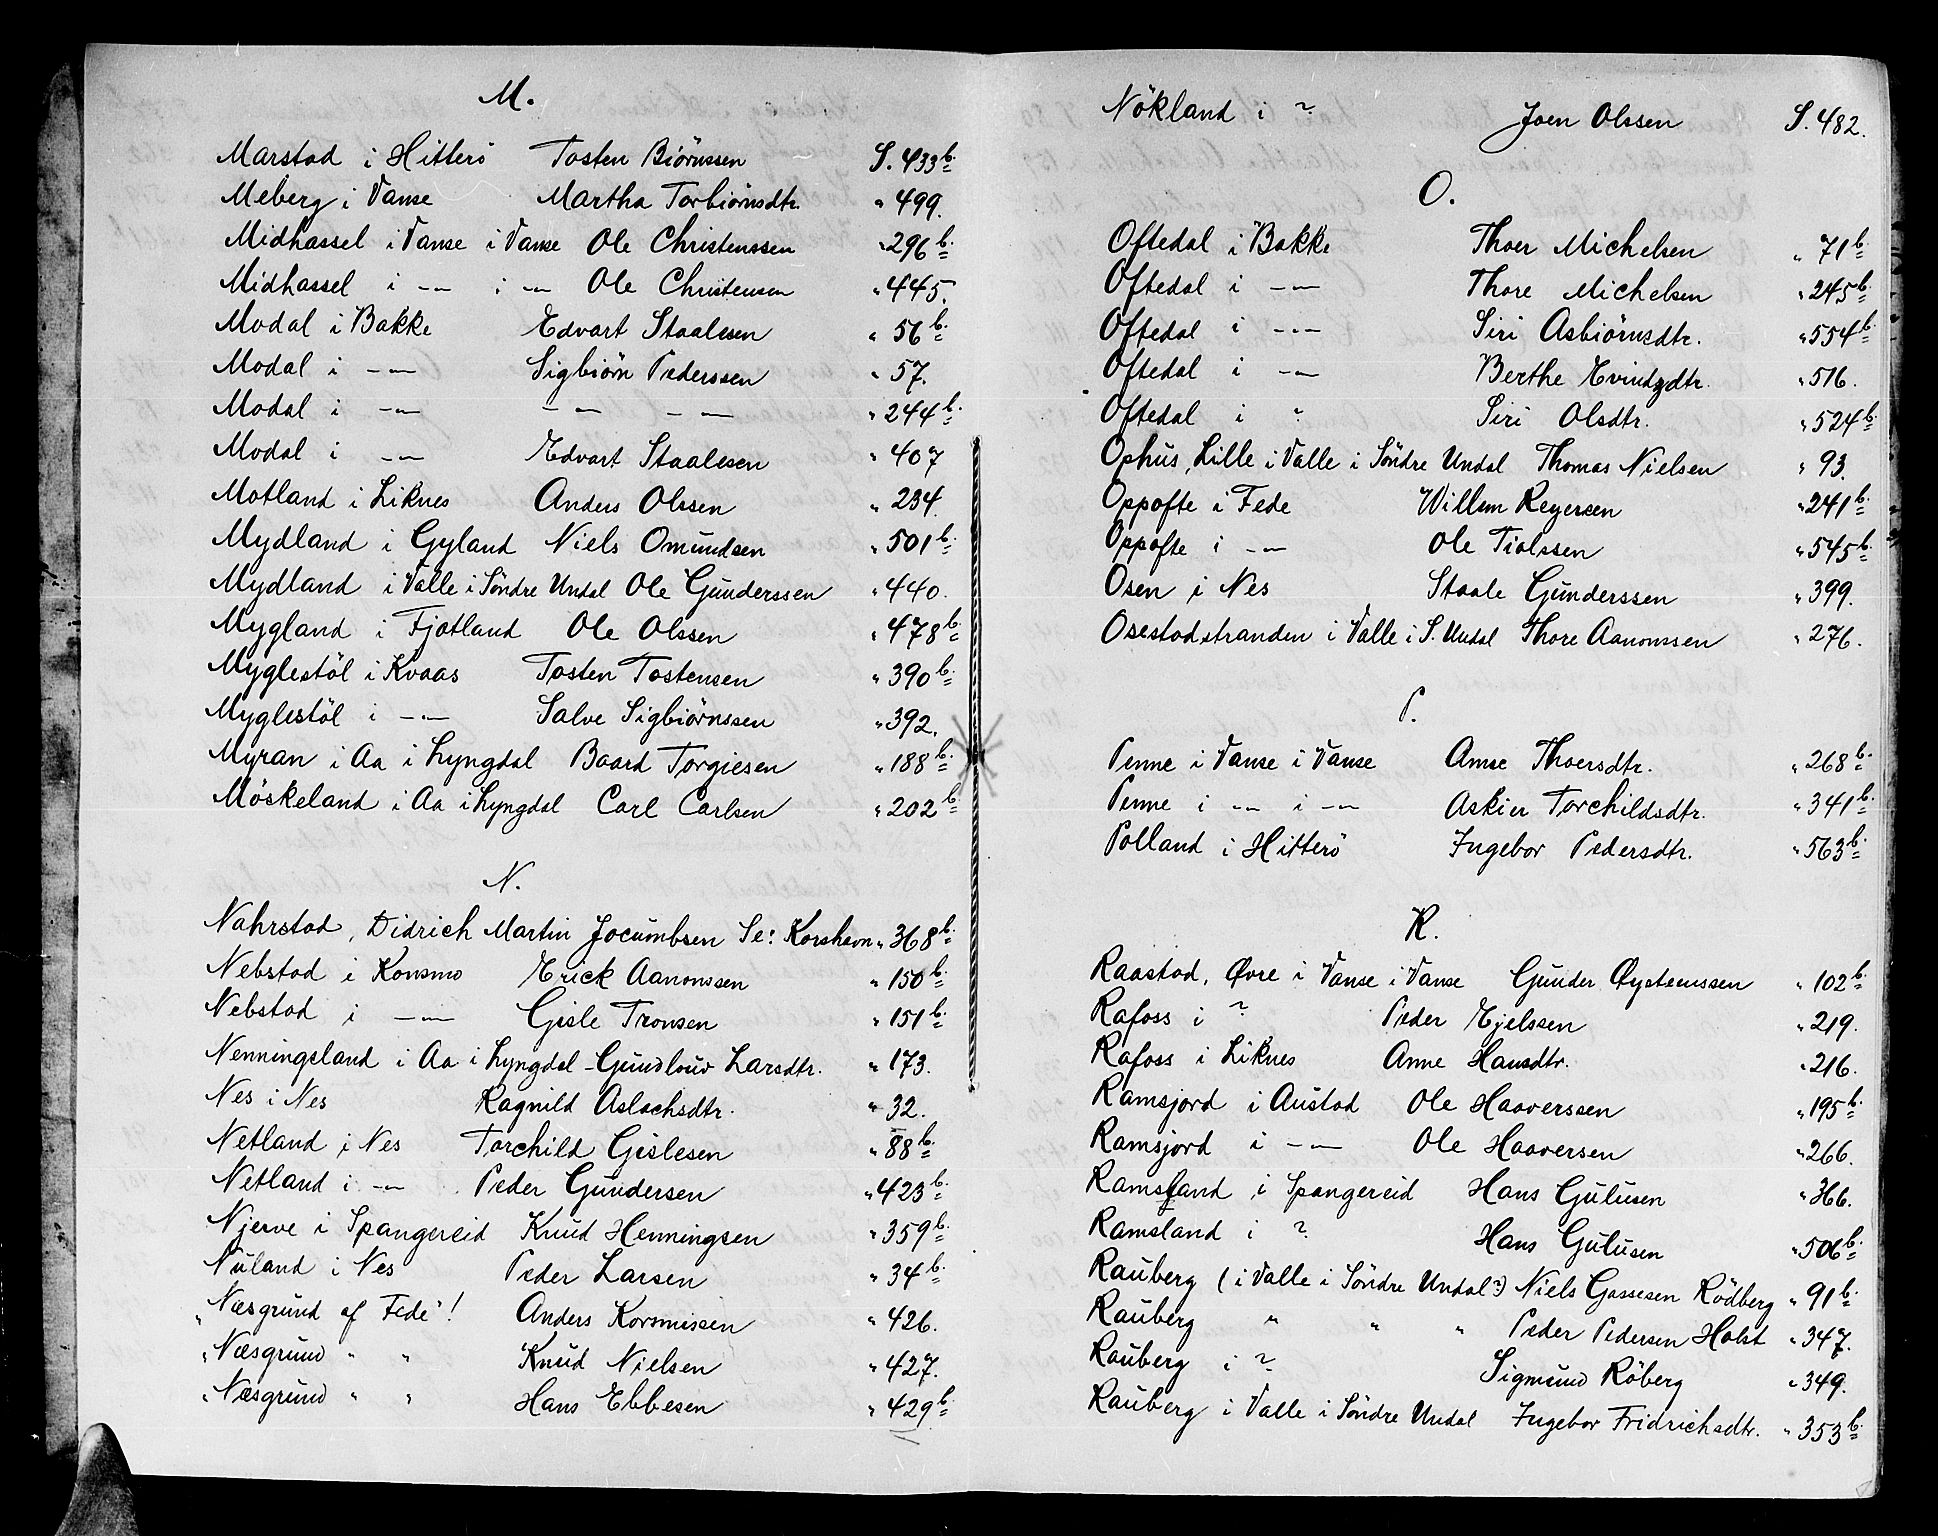 M.
Marstad i Hitterö Tosten Biörnssen S. 433 b.
Meberg i Vanse Martha Torbiörnsdtr. " 499.
Midhassel i Vanse i Vanse Ole Christenssen " 296 b.
Midhassel i -"- i -"- Ole Christensen " 445.
Modal i Bakke Edvart Staalesen " 56 b.
Modal i -"- Sigbiörn Pederssen " 57.
Modal i -"- -"- -"- " 244 b.
Modal i -"- Edvart Staalesen " 407
Motland i Liknes Anders Olssen " 234.
Mydland i Gyland Niels Omundsen " 501 b.
Mydland i Valle i Söndre Undal Ole Gunderssen " 440.
Mygland i Fjotland Ole Olssen " 478 b.
Myglestöl i Kvaas Tosten Tostensen " 390 b.
Myglestöl i -"- Salve Sigbiörnssen " 392.
Myran i Aa i Lyngdal Baard Torgiesen " 188 b.
Möskeland i Aa i Lyngdal Carl Carlsen " 202 b.
N.
Nahrstad, Didrich Martin Jocumbsen Se: Korshavn " 368 b.
Nebstad i Konsmo Erick Aanonssen " 150 b.
Nebstad i -"- Gisle Tronsen " 151 b.
Nenningsland i Aa i Lyngdal - Gundlouv Larsdtr. " 173.
Nes i Nes Ragnild Aslachsdtr. " 32.
Netland i Nes Torchild Gislesen " 88 b.
Netland i -"- Peder Gundersen " 423 b.
Njerve i Spangereid Knud Henningsen " 359 b.
Nuland i Nes Peder Larsen " 34 b.
"Næsgrund af Fede"! Anders Korsmissen " 426.
"Næsgrund " " Knud Nielsen " 427.
"Næsgrund " " Hans Ebbesen " 429 b.
Nökland i ? Joen Olssen S. 482.
O.
Oftedal i Bakke Thoer Michelsen " 71 b.
Oftedal i -"- Thore Michelsen " 245 b.
Oftedal i -"- Siri Asbiörnsdtr. " 554 b.
Oftedal i -"- Berthe Evindsdtr. " 516.
Oftedal i " Siri Olsdtr. " 524 b.
Ophus, Lille i Valle i Söndre Undal Thomas Nielsen " 93.
Oppofte i Fede Willum Reyersen " 241 b.
Oppofte i -"- Ole Tialssen " 545 b.
Osen i Nes Staale Gunderssen " 399.
Osestadstranden i Valle i S. Undal Thore Aanonssen " 276.
P.
Penne i Vanse i Vanse Anne Thoersdtr. " 268 b.
Penne i -"- i -"- Askier Torchildsdtr. " 341 b.
Polland i Hitterö Ingebor Pedersdtr. " 563 b.
R.
Raastad, Øvre i Vanse i Vanse Gunder Øystenssen " 102 b.
Rafoss i ? Peder Ejelssen " 219.
Rafoss i Liknes Anne Hansdtr. " 216.
Ramsjord i Austad Ole Haaverssen " 195 b.
Ramsjord i -"- Ole Haaversen " 266.
Ramsland i Spangereid Hans Gulusen " 366.
Ramsland i ? Hans Gulusen " 506 b.
Rauberg (i Valle i Söndre Undal?) Niels Gassesen Rödberg " 91 b.
Rauberg " " " Peder Pedersen Holst " 347.
Rauberg i ? Sigmund Röberg " 349.
Rauberg i Valle i Söndre Undal Ingebor Fridrichsdtr. " 353 b.